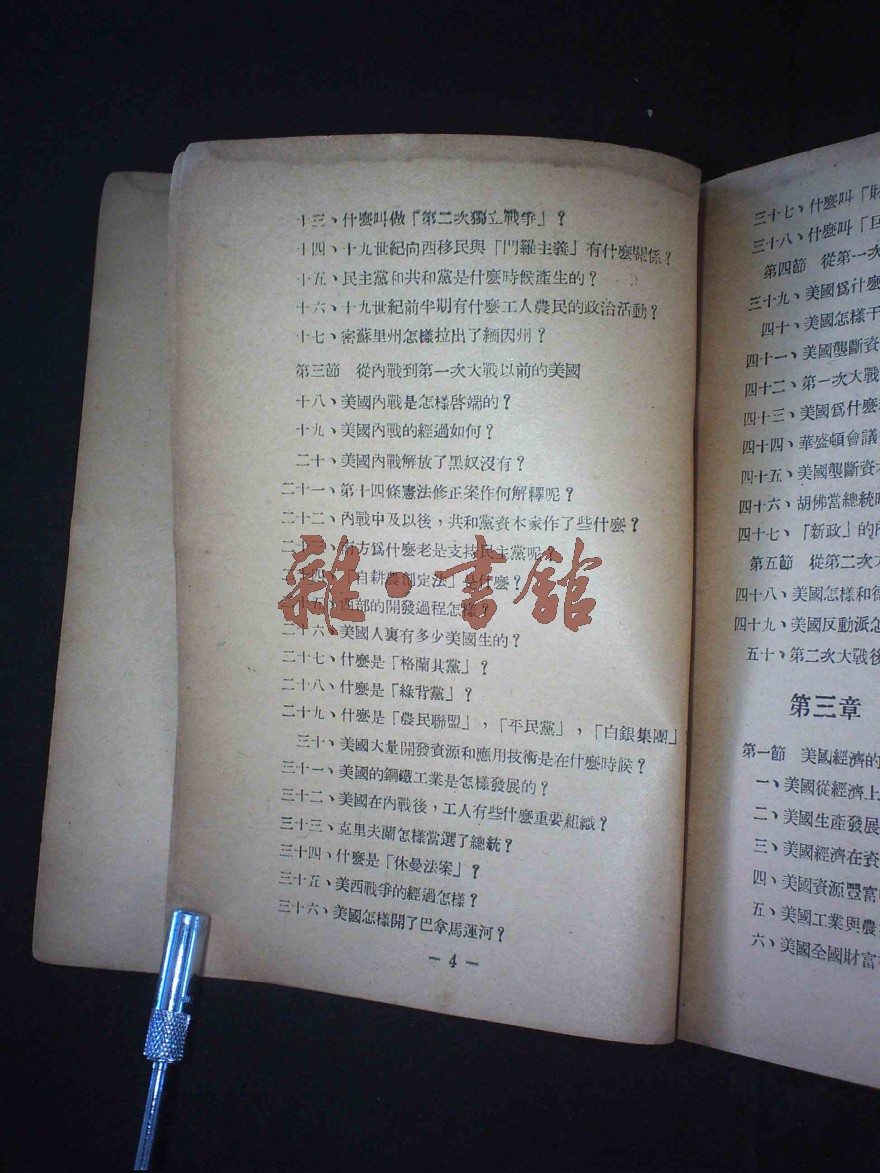 十三、什麼叫做「第二次獨立戰爭」？
十四、十九世紀向西移民與「門羅主義」有什麼關係？
十五、民主黨和共和黨是什麼時候產生的？
十六、十九世紀前半期有什麼工人農民的政治活動？
十七、密蘇里州怎樣拉出了緬因州？
第三節　從內戰到第一次大戰以前的美國
十八、美國內戰是怎樣啓端的？
十九、美國內戰的經過如何？
二十、美國內戰解放了黑奴沒有？
二十一、第十四條憲法修正案作何解釋呢？
二十二、內戰中及以後，共和黨資本家作了些什麼？
二十三、南方爲什麼老是支持民主黨呢？
二十四、「自耕農創定法」是什麼？
二十五、西部的開發過程怎樣？
二十六、美國人裏有多少美國生的？
二十七、什麼是「格蘭其黨」？
二十八、什麼是「綠背黨」？
二十九、什麼是「農民聯盟」，「平民黨」，「白銀集團」
三十、美國大量開發資源和應用技術是在什麼時候？
三十一、美國的鋼鐵工業是怎樣發展的？
三十二、美國在內戰後，工人有些什麼重要組織？
三十三、克里夫蘭怎樣當選了總統？
三十四、什麼是「休曼法案」？
三十五、美西戰爭的經過怎樣？
三十六、美國怎樣開了巴拿馬運河？
— 4 —
三十七、什麼叫「財
三十八、什麼叫「巨
第四節　從第一次
三十九、美國爲什麼
四十、美國怎樣干
四十一、美國壟斷資
四十二、第一次大戰
四十三、美國爲什麼
四十四、華盛頓會議
四十五、美國壟斷資本
四十六、胡佛當總統時
四十七、「新政」的內
第五節　從第二次大
四十八、美國怎樣和德
四十九、美國反動派怎
五十、第二次大戰後
第三章
第一節　美國經濟的
一、美國從經濟上
二、美國生產發展
三、美國經濟在資
四、美國資源豐富
五、美國工業與農
六、美國全國財富
雜·書館